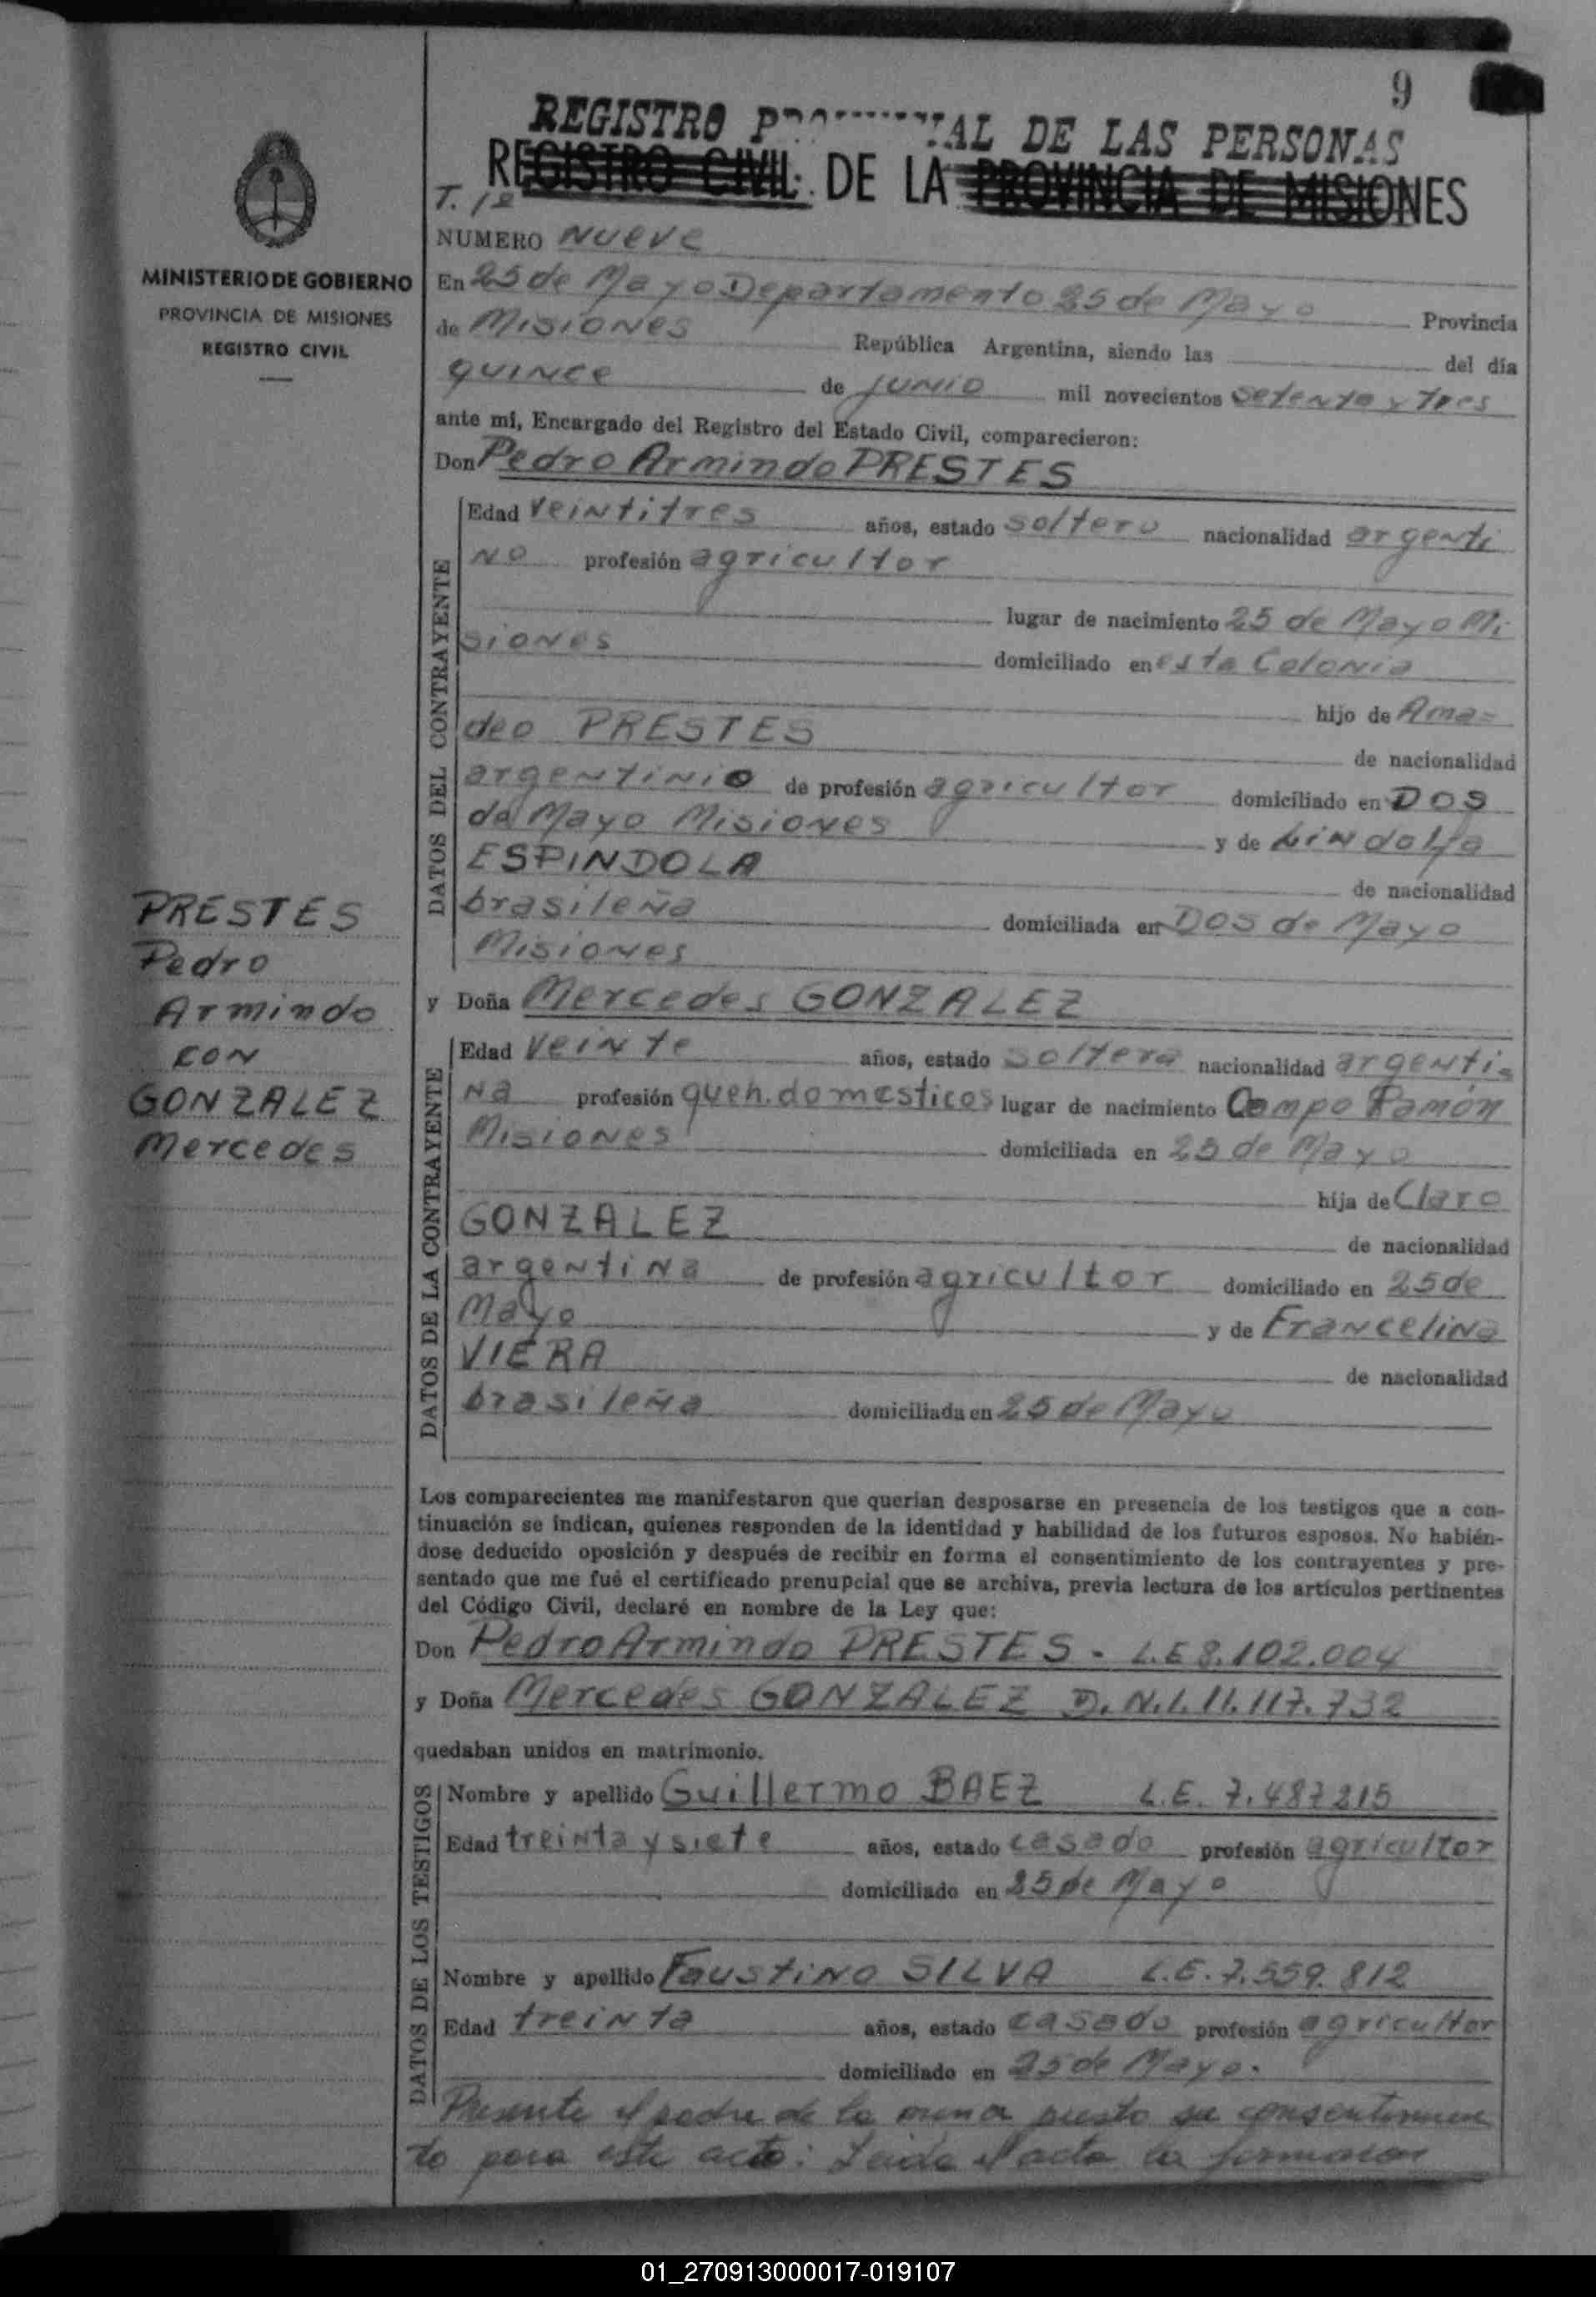 9
REGISTRO DE LAS PERSONAS
REGISTRO CIVIL DE LA PROVINCIA DE MISIONES
T. 1º
MINISTERIO DE GOBIERNO
PROVINCIA DE MISIONES
REGISTRO CIVIL
NUMERO Nueve
En 25 de Mayo Departamento 25 de Mayo Provincia
de Misiones República Argentina, siendo las del día
quince de junio mil novecientos setenta y tres
ante mi, Encargado del Registro del Estado Civil, comparecieron:
Don Pedro Armindo PRESTES
DATOS DEL CONTRAYENTE
Edad veintitres años, estado soltero nacionalidad argenti
no profesión agricultor
lugar de nacimiento 25 de Mayo Mi
siones domiciliado en esta Colonia
hijo de Ama=
deo PRESTES de nacionalidad
argentinio de profesión agricultor domiciliado en DOS
de Mayo Misiones y de Lindolfa
ESPINDOLA de nacionalidad
brasileña domiciliada en Dos de Mayo
Misiones
PRESTES
Pedro
Armindo
con
GONZALEZ
Mercedes
y Doña Mercedes GONZALEZ
DATOS DE LA CONTRAYENTE
Edad veinte años, estado soltera nacionalidad argenti=
na profesión queh. domesticos lugar de nacimiento Campo Ramón
Misiones domiciliada en 25 de Mayo
hija de Claro
GONZALEZ de nacionalidad
argentina de profesión agricultor domiciliado en 25 de
Mayo y de Francelina
VIERA de nacionalidad
brasileña domiciliada en 25 de Mayo
Los comparecientes me manifestaron que querían desposarse en presencia de los testigos que a con-
tinuación se indican, quienes responden de la identidad y habilidad de los futuros esposos. No habién-
dose deducido oposición y después de recibir en forma el consentimiento de los contrayentes y pre-
sentado que me fué el certificado prenupcial que se archiva, previa lectura de los artículos pertinentes
del Código Civil, declaré en nombre de la Ley que:
Don Pedro Armindo PRESTES - L.E 8.102.004
y Doña Mercedes GONZALEZ D.N.I. 11.117.732
quedaban unidos en matrimonio.
DATOS DE LOS TESTIGOS
Nombre y apellido Guillermo BAEZ L.E. 7.487215
Edad treinta y siete años, estado casado profesión agricultor
domiciliado en 25 de Mayo
Nombre y apellido Faustino SILVA L.E. 7.559.812
Edad treinta años, estado casado profesión agricultor
domiciliado en 25 de Mayo.
Presente el padre de la presto su consentimien
to para este acto: Leida el acta la firmaron
01_270913000017-019107